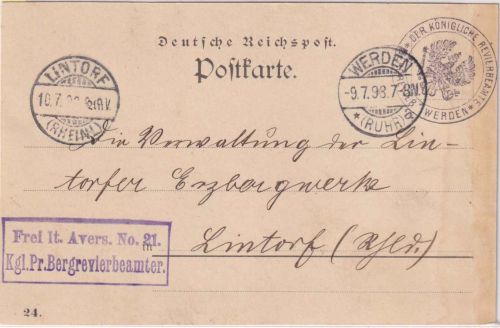 Deutsche Reichspost.
Postkarte.
LINTORF
(RHEINL)
WERDEN
-9.7.98.7-8N.
*(RUHR)*
DER KÖNIGLICHE REVIERBEAMTE
* WERDEN *
Die Verwaltung der Lin-
torfer Erzbergwerke
in
Lintorf (Rhld.)
Frei lt. Avers. No. 21.
Kgl.Pr.Bergrevierbeamter.
24.